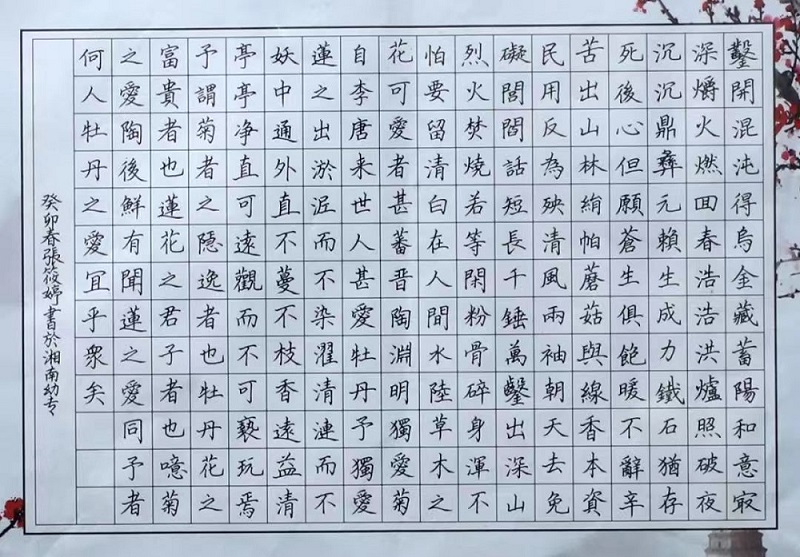 鑿開混沌得烏金藏蓄陽和意㝡
深爝火燃囬春浩浩洪爐照破夜
沉沉鼎彝元賴生成力鐵石猶存
死後心但願蒼生俱飽暖不辭辛
苦出山林絹帕蘑菇與線香本資
民用反為殃清風兩袖朝天去免
礙閭閻話短長千錘萬鑿出深山
烈火焚燒若等閑粉骨碎身渾不
怕要留清白在人間水陸草木之
花可愛者甚蕃晉陶淵明獨愛菊
自李唐来世人甚愛牡丹予獨愛
蓮之出淤泥而不染濯清漣而不
妖中通外直不蔓不枝香遠益清
亭亭净直可遠觀而不可褻玩焉
予謂菊者之隱逸者也牡丹花之
富貴者也蓮花之君子者也噫菊
之愛陶後鮮有聞蓮之愛同予者
何人牡丹之愛宜乎眾矣
癸卯春張筱婷書於湘南幼专